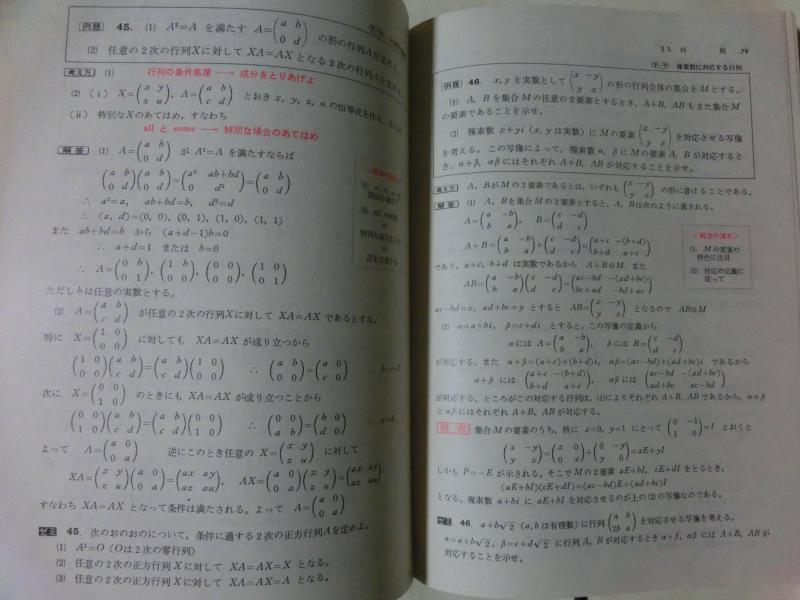 例題 45. (1) A²=A を満たす A=(a b / 0 d) の形の行列Aを
(2) 任意の2次の行列Xに対して XA=AX となる2次の行列Aを
考え方 (1) 行列の条件処理 → 成分をとりあげよ
(2) (ⅰ) X=(x y / z u), A=(a b / c d) とおき x, y, z, u の恒等式を
(ⅱ) 特別なXのあてはめ, すなわち
all と some → 特別な場合のあてはめ
解答 (1) A=(a b / 0 d) が A²=A を満たすならば
(a b / 0 d)(a b / 0 d)=(a² ab+bd / 0 d²)=(a b / 0 d)
∴ a²=a, ab+bd=b, d²=d
∴ (a, d)=(0, 0), (0, 1), (1, 0), (1, 1)
また ab+bd=b から (a+d−1)b=0
∴ a+d=1 または b=0
∴ A=(0 b / 0 1), (1 b / 0 0), (0 0 / 0 0), (1 0 / 0 1)
ただし b は任意の実数とする。
(2) A=(a b / c d) が任意の2次の行列Xに対して XA=AX であるとする。
特に X=(1 0 / 0 0) に対しても XA=AX が成り立つから
(1 0 / 0 0)(a b / c d)=(a b / c d)(1 0 / 0 0) ∴ (a b / 0 0)=(a 0 / c 0) ∴ b=c=0
次に X=(0 0 / 1 0) のときにも XA=AX が成り立つことから
(0 0 / 1 0)(a b / c d)=(a b / c d)(0 0 / 1 0) ∴ (0 0 / a b)=(b 0 / d 0) ∴ a=d
よって A=(a 0 / 0 a) 逆にこのとき任意の X=(x y / z u) に対して
XA=(x y / z u)(a 0 / 0 a)=(ax ay / az au), AX=(a 0 / 0 a)(x y / z u)=(ax ay / az au)
すなわち XA=AX となって条件は満たされる。よって A=(a 0 / 0 a)
ゼミ 45. 次のおのおのについて, 条件に適する2次の正方行列Aを定めよ。
(1) A²=O (Oは2次の零行列)
(2) 任意の2次の正方行列Xに対して XA=AX=X となる。
(3) 任意の2次の正方行列Xに対して XA=AX=A となる。
§1. 行 列 79
テーマ 複素数に対応する行列
例題 46. x, y を実数として (x −y / y x) の形の行列全体の集合をMとする。
(1) A, Bを集合Mの任意の2要素とするとき, A+B, ABもまた集合M
の要素であることを示せ。
(2) 複素数 x+yi (x, y は実数) にMの要素 (x −y / y x) を対応させる写像
を考える。この写像によって, 複素数 α, β にMの要素 A, B が対応すると
き, α+β, αβ にはそれぞれ A+B, AB が対応することを示せ。
考え方 A, BがMの2要素であるとは, いずれも (x −y / y x) の形に書けることである。
解答 (1) A, Bを集合Mの2要素とすると, A, Bは次のように表される。
A=(a −b / b a), B=(c −d / d c)
∴ A+B=(a −b / b a)+(c −d / d c)=(a+c −(b+d) / b+d a+c)
<解法の流れ>
(1) Mの要素の
特色に注目
(2) 対応の定義に
従って
であり, a+c, b+d は実数であるから A+B∈M. また
AB=(a −b / b a)(c −d / d c)=(ac−bd −(ad+bc) / bc+ad −bd+ac)
ac−bd=x, ad+bc=y とすると AB=(x −y / y x) となるので AB∈M
(2) α=a+bi, β=c+di とすると, この写像の定義から
αには A=(a −b / b a), βには B=(c −d / d c)
が対応する。また α+β=(a+c)+(b+d)i, αβ=(ac−bd)+(ad+bc)i であるから
α+β には (a+c −(b+d) / b+d a+c), αβ には (ac−bd −(ad+bc) / ad+bc ac−bd)
が対応する。ところがこの対応する行列は, (1)によりそれぞれ A+B, AB であるから, α+β
と αβ にはそれぞれ A+B, AB が対応する。
研究 集合Mの要素のうち, 特に x=0, y=1 にとって (0 −1 / 1 0)=I とおくと
(x −y / y x)=(x 0 / 0 x)+(0 −y / y 0)=xE+yI
しかも I²=−E が示される。そこでMの2要素 aE+bI, cE+dI をとるとき,
(aE+bI)(cE+dI)=(ac−bd)E+(ad+bc)I
となる。複素数 a+bi に aE+bI を対応させるのが上の(2)の写像なのである。
ゼミ 46. a+b√2 (a, b は有理数) に行列 (a b / 2b a) を対応させる写像を考える。
α=a+b√2, β=c+d√2 に行列 A, B が対応するとき α+β, αβ には A+B, AB が
対応することを示せ。